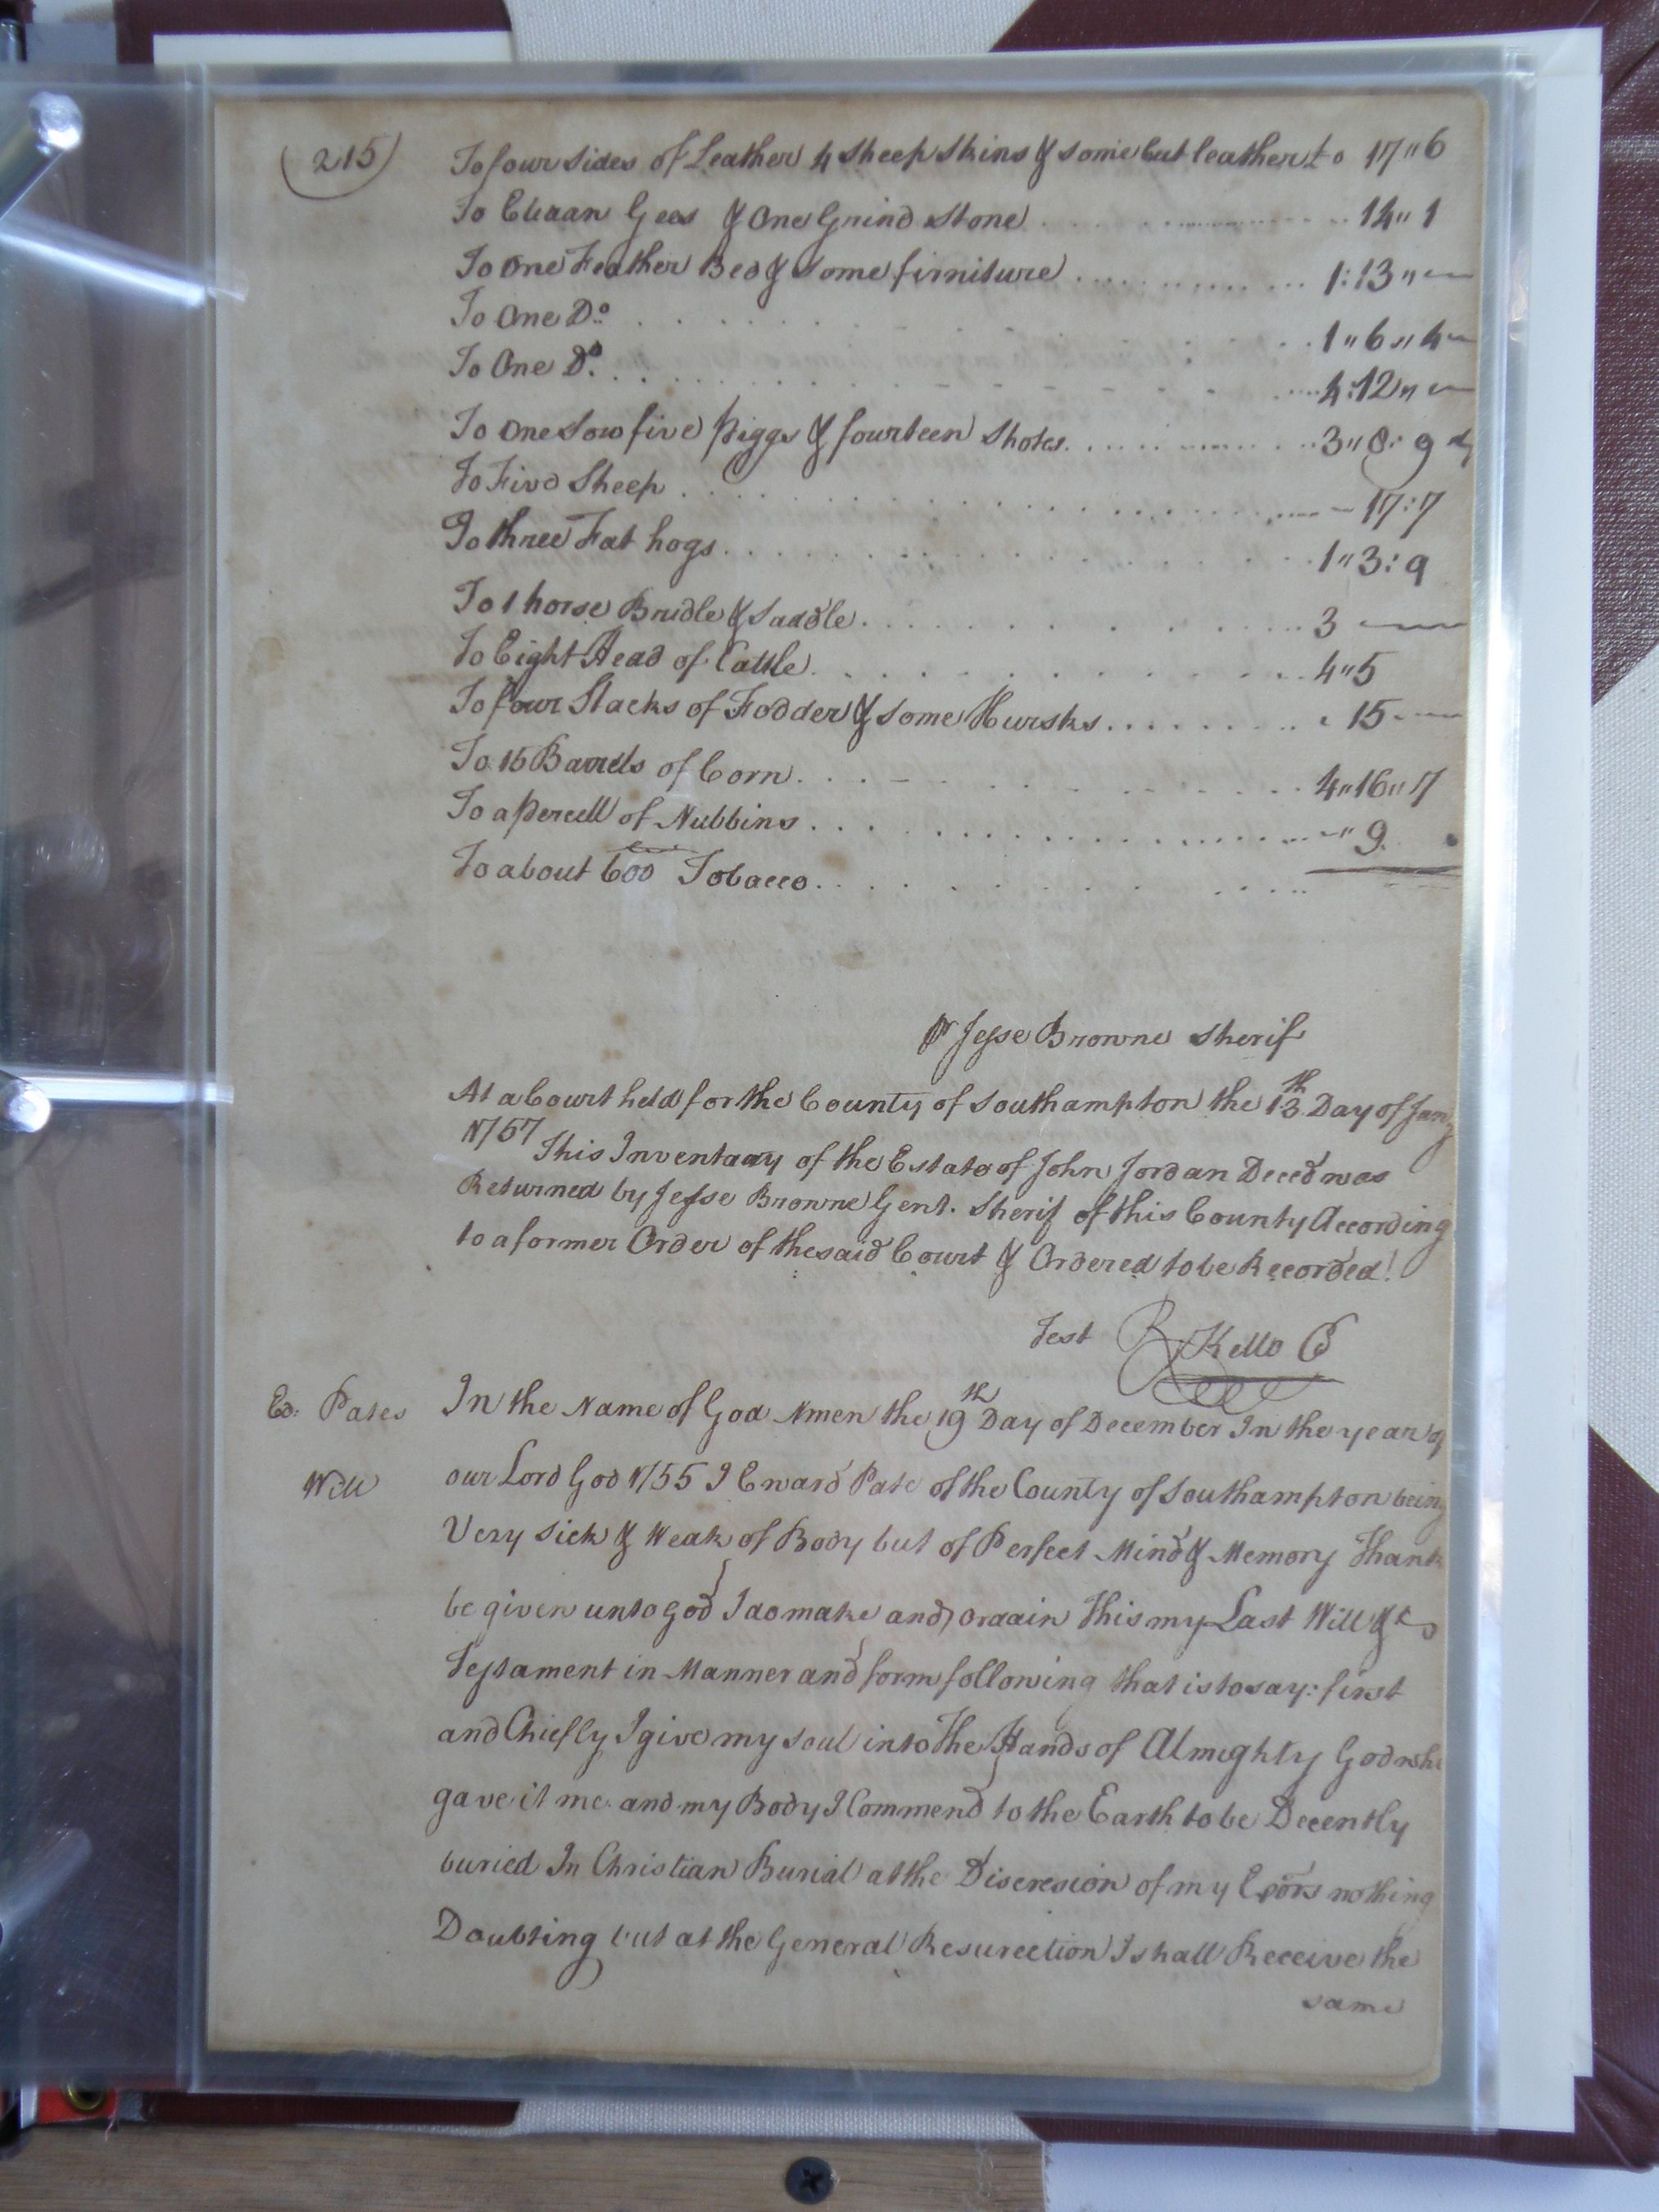 (215)
To four sides of Leather 4 sheep skins & some but leather £0 17"6
To Elvaan Gees & One Grind stone 14"1
To One Feather Bed & some firniture 1:13"—
To One Do 1"6"4
To One Do 4:12"—
To One Sow five piggs & fourteen Shotes 3"8:9
To Five Sheep 17:7
To three Fat hogs 1"3:9
To 1 horse Bridle & Saddle 3 —
To Eight Head of Cattle 4"5
To four Stacks of Fodder & some Hursks 15 —
To 15 Barrels of Corn 4"16"7
To a percell of Nubbins 9
To about 600 Tobacco
Pr Jesse Browne Sherif
At a Court held for the County of Southampton the 13th Day of Jany
1757 This Inventary of the Estate of John Jordan Deced was
Returned by Jesse Browne Gent. Sherif of this County According
to a former Order of the said Court & Ordered to be Recorded
Test R Kello C
Ed: Pates
Will
In the Name of God Amen the 19th Day of December In the year of
our Lord God 1755 I Enard Pate of the County of Southampton being
Very Sick & Weak of Body but of Perfect Mind & Memory Thank
be given unto God I do make and ordain this my Last Will &
Testament in Manner and form following that is to say: first
and Chiefly I give my Soul into The Hands of Almighty God who
gave it me and my Body I Commend to the Earth to be Decently
buried In Christian Burial at the Discresion of my Exors nothing
Doubting but at the General Resurection I shall Receive the
same